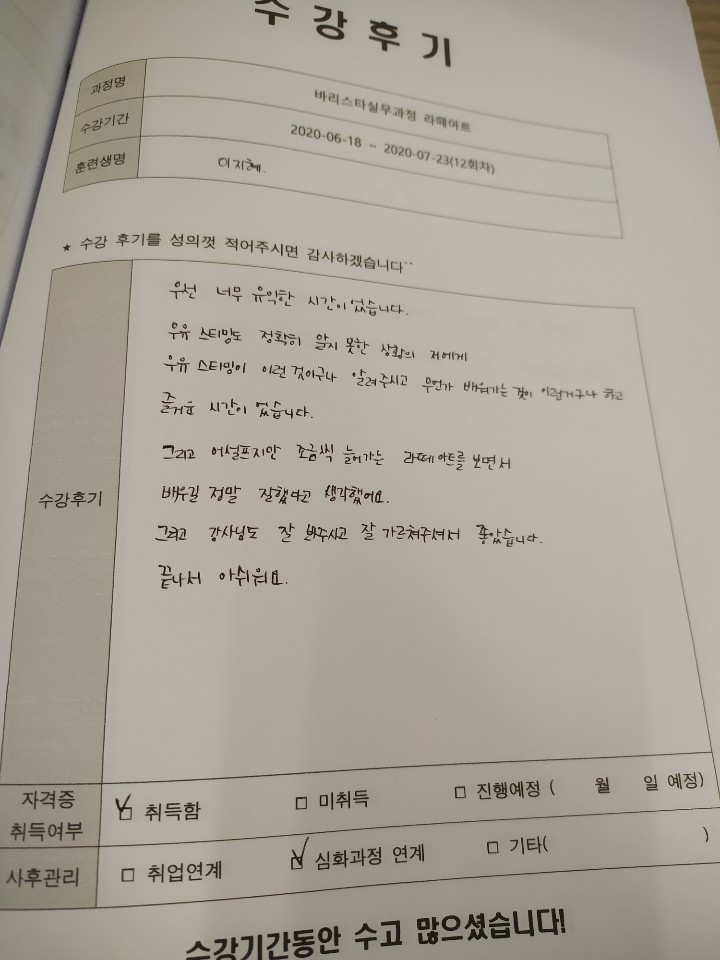 수강후기
과정명 바리스타실무과정 라떼아트
수강기간 2020-06-18 ~ 2020-07-23(12회차)
훈련생명 이지혜.
★ 수강 후기를 성의껏 적어주시면 감사하겠습니다^^
수강후기
우선 너무 유익한 시간이었습니다.
우유 스티밍도 정확히 알지 못한 상황의 저에게
우유 스티밍이 이런것이구나 알려주시고 무언가 배워가는 것이 이런거구나 하고
즐거운 시간이 었습니다.
그리고 어설프지만 조금씩 늘어가는 라떼아트를 보면서
배우길 정말 잘했다고 생각했어요.
그리고 강사님도 잘 봐주시고 잘 가르쳐주셔서 좋았습니다.
끝나서 아쉬워요.
자격증 취득여부 ☑ 취득함 □ 미취득 □ 진행예정 ( 월 일 예정)
사후관리 □ 취업연계 ☑ 심화과정 연계 □ 기타( )
수강기간동안 수고 많으셨습니다!